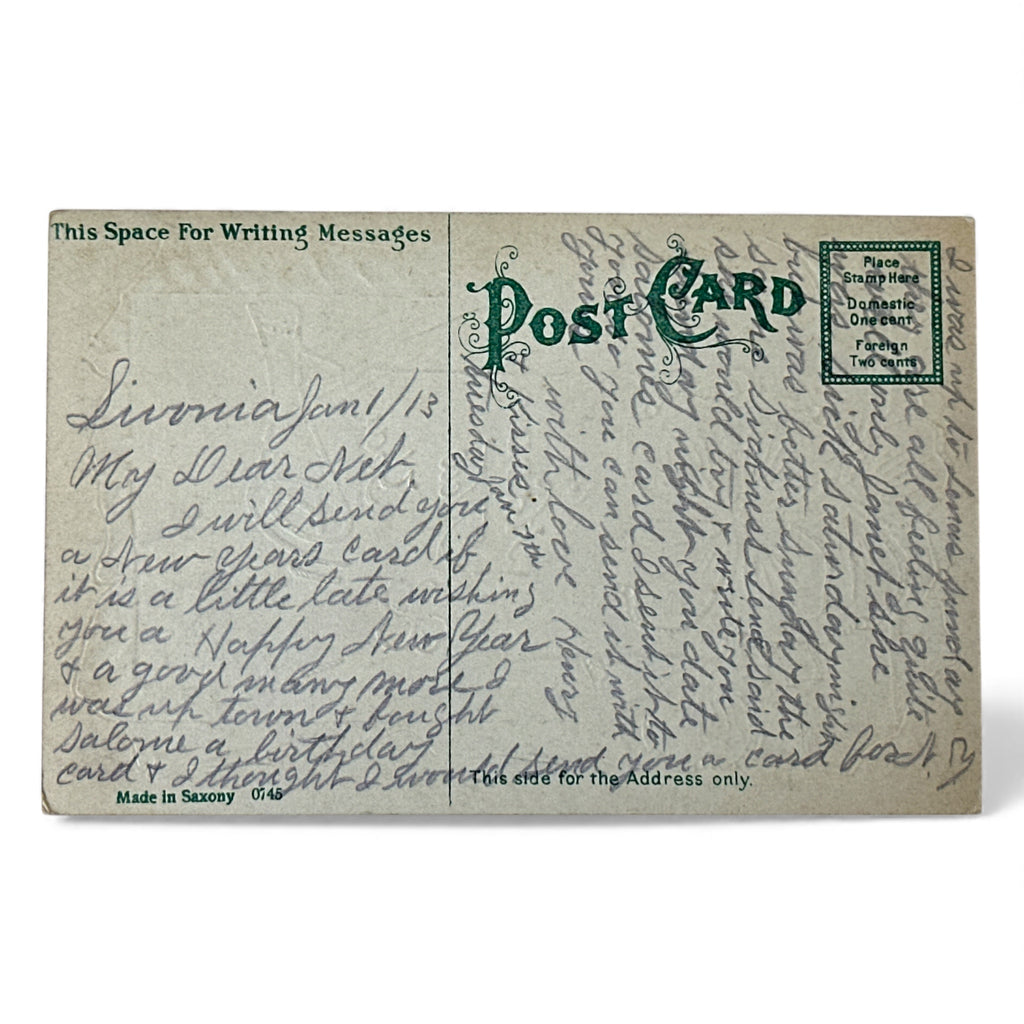 This Space For Writing Messages
POST CARD
Place
Stamp Here
Domestic
One cent
Foreign
Two cents
Livonia Jan 1/13
My Dear Net.
I will send you
a New Years card if
it is a little late wishing
you a Happy New Year
& a good many more I
was up town & bought
Salome a birthday
card & I thought I would send you a card
I was up to Sunday
are all feeling quite
only Janet she
sick saturday night
but was better Sunday the
same sickness Lena said
she would try & write you
night you date
Salome card I sent it to
you so you can send it with
yours
with love Henry
& Kisses
Jan 7th
This side for the Address only.
Made in Saxony 0745